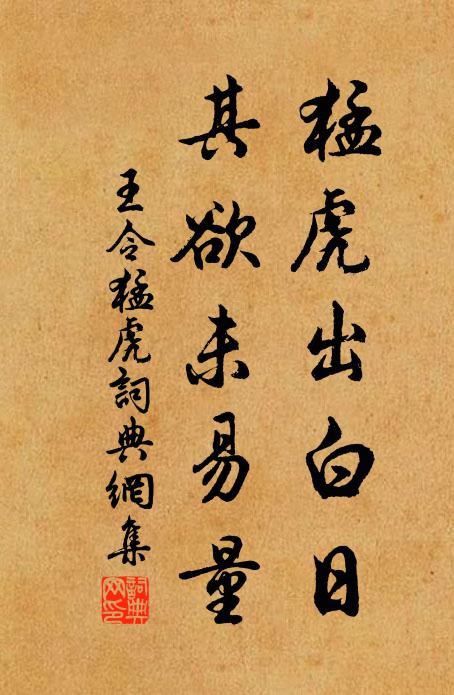 猛虎出白日
其欲未易量
王令猛虎詞典網集
詞典网印